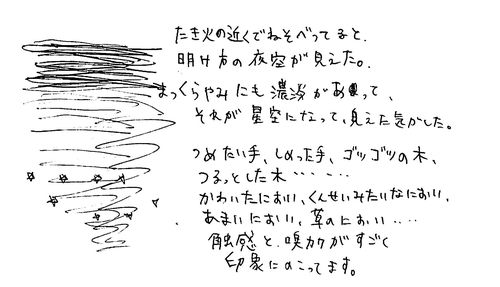 たき火の近くでねそべってると、
明け方の夜空が見えた。
まっくらやみにも濃淡があって、
それが星空になって、見えた気がした。
つめたい手、しめった手、ゴツゴツの木、
つるっとした木‥‥‥
かわいたにおい、くんせいみたいなにおい、
あまいにおい、草のにおい‥‥
触感と、嗅カクがすごく
印象にのこってます。